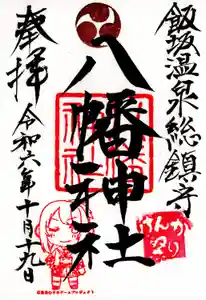 飯坂温泉総鎮守
けんか祭り
八幡神社
奉拝
令和六年十月十九日